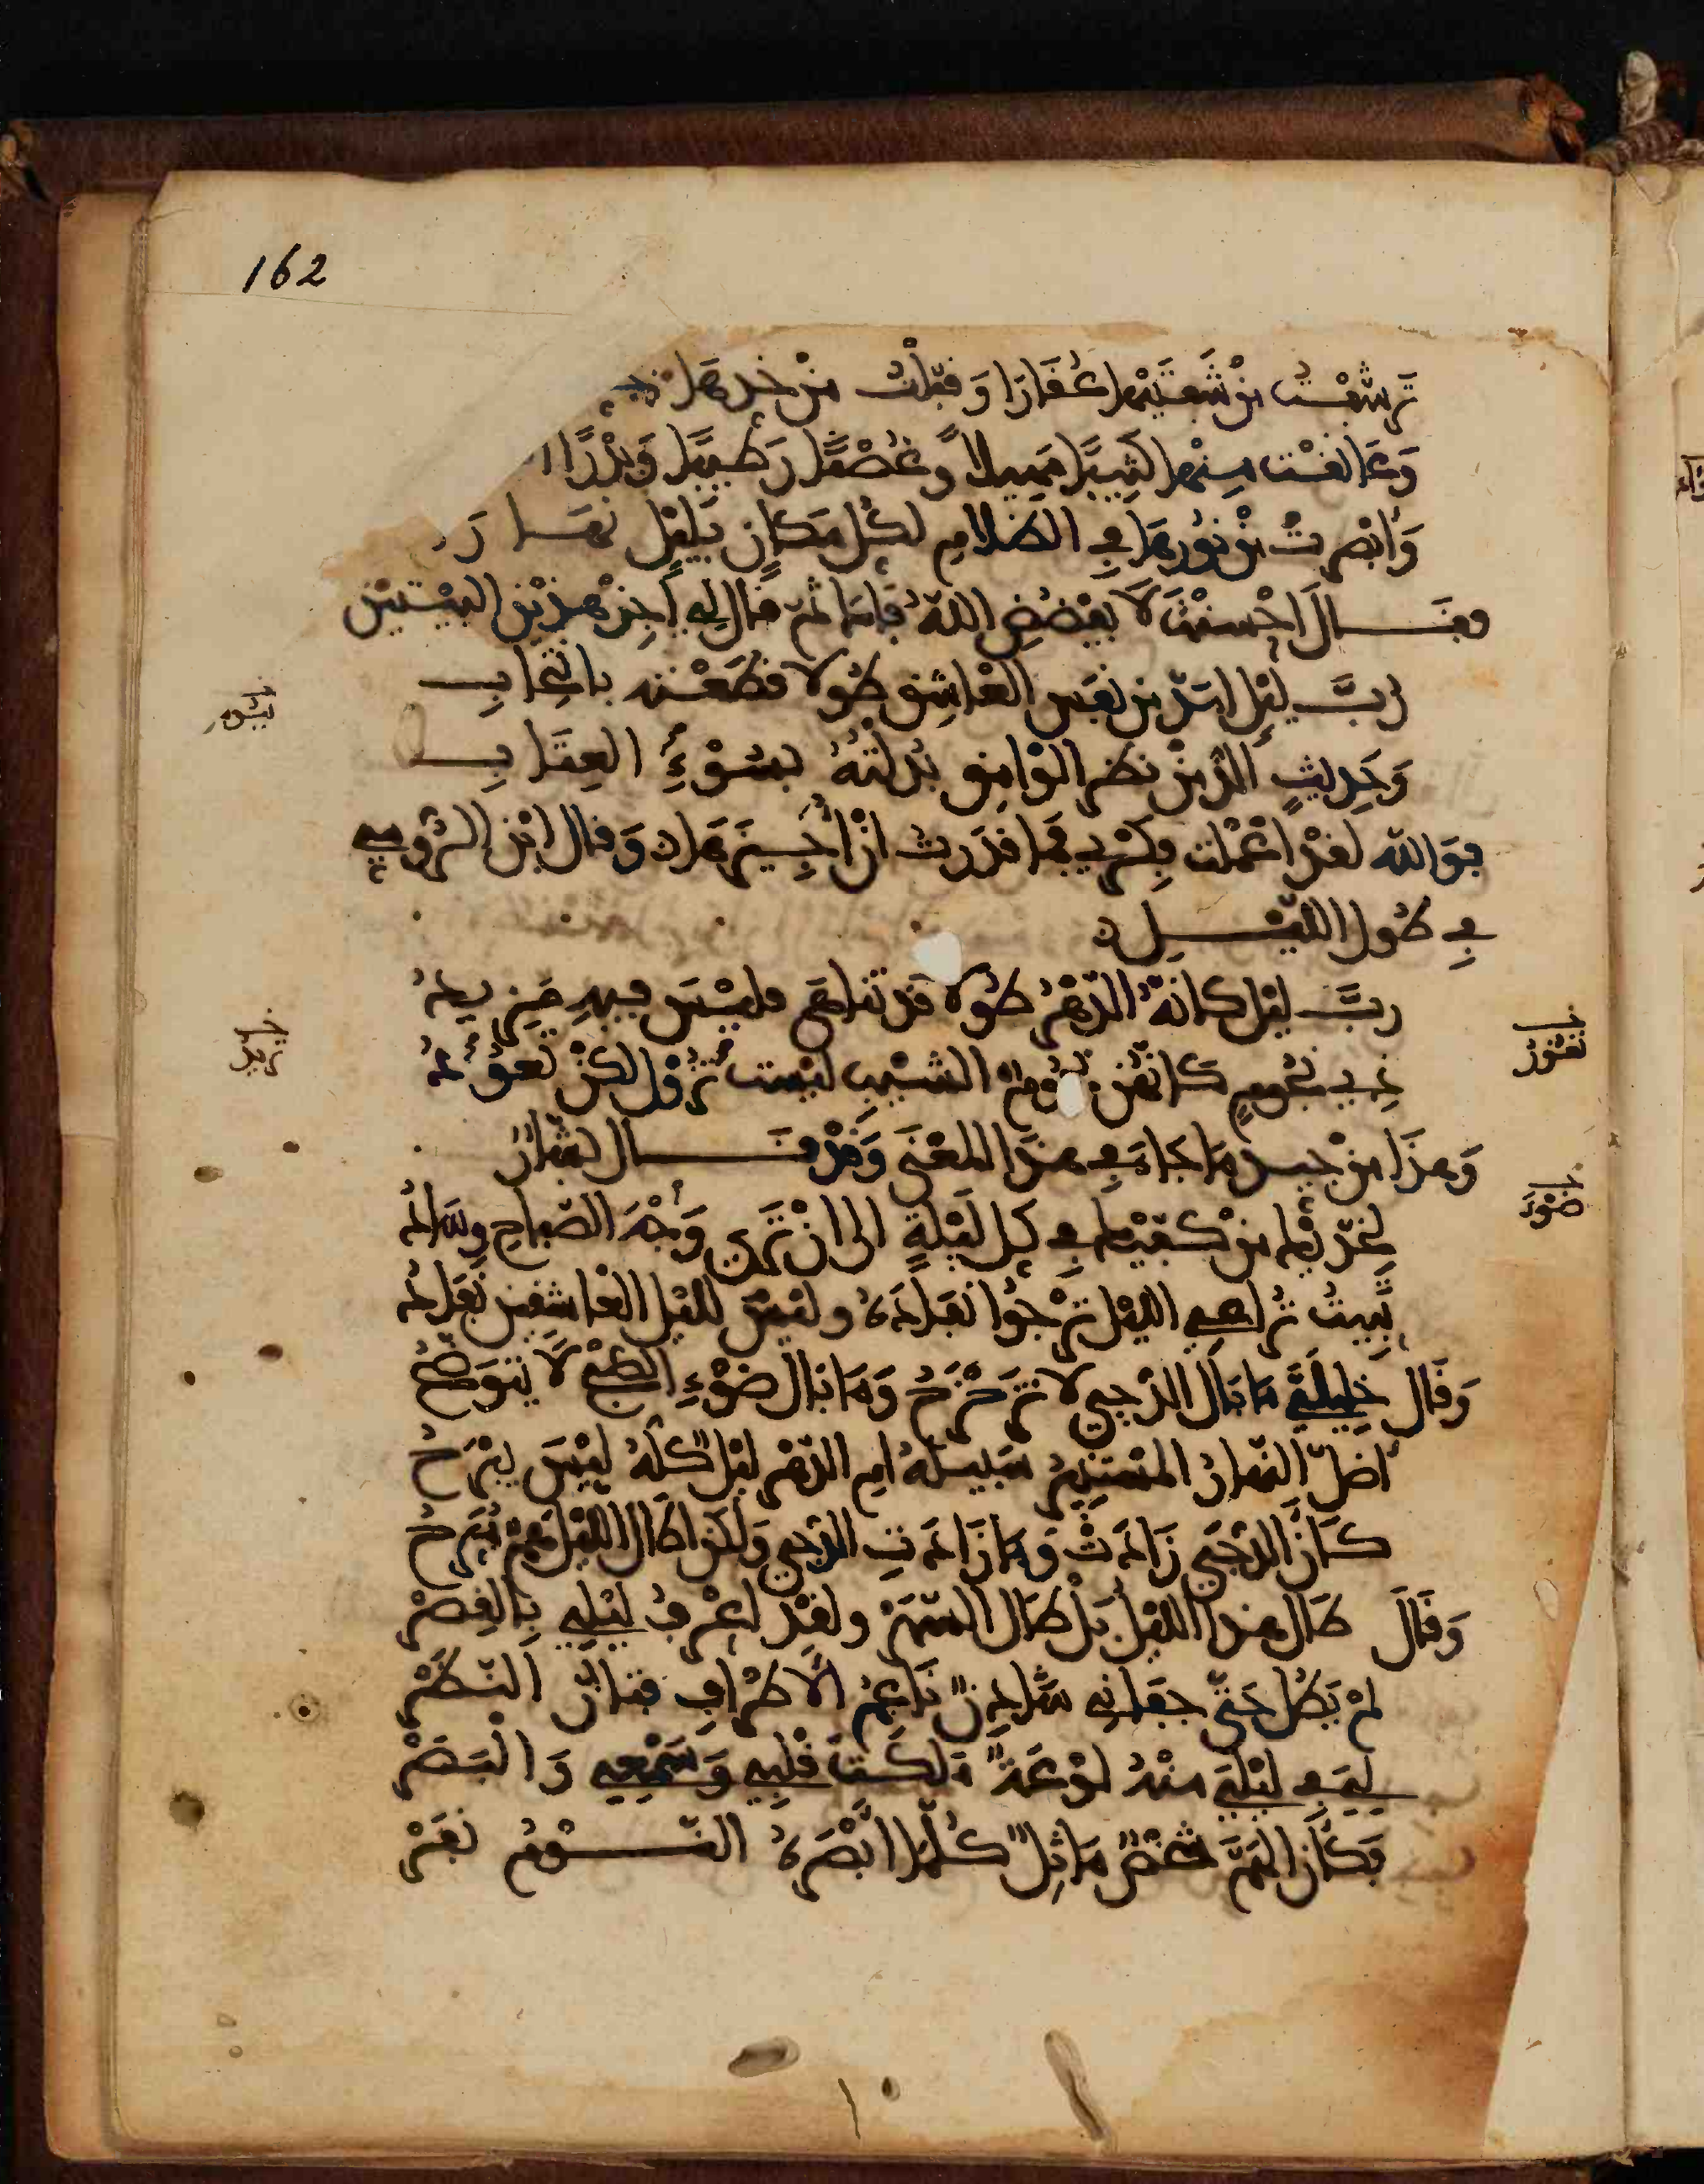 162
تَرَشَّفْتُ مِنْ شَفَتَيْهَا عُقَارًا وَقَبَّلْتُ مِنْ خَدِّهَا
وَعَانَقْتُ مِنْهَا كَثِيبًا مَهِيلًا وَغُصْنًا رَطِيبًا وَبَدْرًا
وَأَبْصَرْتُ مِنْ نُورِهَا فِي الظَّلَامِ لِكُلِّ مَكَانٍ بِلَيْلٍ نَهَارَا
فقال أَحْسَنْتَ لَا يَفْضُضِ اللهُ فَاكَ ثم قال لي أجز هذين البيتين
رُبَّ لَيْلٍ أَمَدَّ مِن نَفَسِ العَاشِقِ طُولًا قَطَعْتُه بِانْتِحَابِ
وَحَدِيثٍ أَلَذَّ مِنْ نَظَرِ الوَامِقِ بَدَّلْتُهُ بِسُوءِ العِتَابِ
فَوَاللهِ لَقَدْ أَعْمَلْتُ فِكْرِي فَمَا قَدَرْتُ أَنْ أُجِيزَهَمَا وَقَالَ ابْنُ الرُّومِي
فِي طُولِ اللَّيْـلِ
رُبَّ لَيْلٍ كَأَنَّهُ الدَّهْرُ طُولًا قَدْ تَنَاهَى فَلَيْسَ فِيهِ مَزِيدُ
ذِي نُجُومٍ كَأَنَّهُنَّ نُجُومُ الشَّيْبِ لَيْسَتْ تَزُولُ لَكِنْ تَعُودُ
وَهَذَا مِنْ جَيِّدِ مَا جَاءَ فِي هَذَا المَعْنَى وَقَدْ قَالَ بَشَّارٌ
لِخَدَّيْكَ مِنْ كَفَّيْكَ فِي كُلِّ لَيْلَةٍ إلى أَنْ تَرَى وَجْهَ الصَّبَاحِ وِسَادُ
تَبِيتُ تُرَاعِي اللَّيْلَ تَرْجُو نَفَادَهُ وَلَيْسَ لِلَيْلِ العَاشِقِينَ نَفَادُ
وَقَالَ خَلِيلَيَّ مَا بَالُ الدُّجَى لَا تَزَحْزَحُ وَمَا بَالُ ضَوْءِ الصُّبْحِ لَا يَتَوَضَّحُ
أَضَلَّ النَّهَارُ المُسْتَنِيرُ سَبِيلَهُ أَمِ الدَّهْرُ لَيْلٌ كُلُّهُ لَيْسَ يَبْرَحُ
كَأَنَّ الدُّجَى زَادَتْ وَمَا زَادَتِ الدُّجَى وَلَكِنْ أَطَالَ اللَّيْلَ هَمٌّ مُبَرِّحُ
وَقَالَ طَالَ هَذَا اللَّيْلُ بَلْ طَالَ السَّهَرْ وَلَقَدْ أَعْرِفُ لَيْلِي بِالقِصَرْ
لَمْ يَطُلْ حَتَّى جَفَانِي شَادِنٌ نَاعِمُ الأَطْرَافِ فَتَّانُ النَّظَرْ
لِيَ فِي لَيْلِيَ مِنْهُ لَوْعَةٌ مَلَكَتْ قَلْبِي وَسَمْعِي وَالبَصَرْ
فَكَأَنَّ الهَمَّ شَخْصٌ مَاثِلٌ كُلَّمَا أَبْصَرَهُ النَّوْمُ نَفَرْ
خ
خ
تزيد
خ
تغور
خ
ضوء